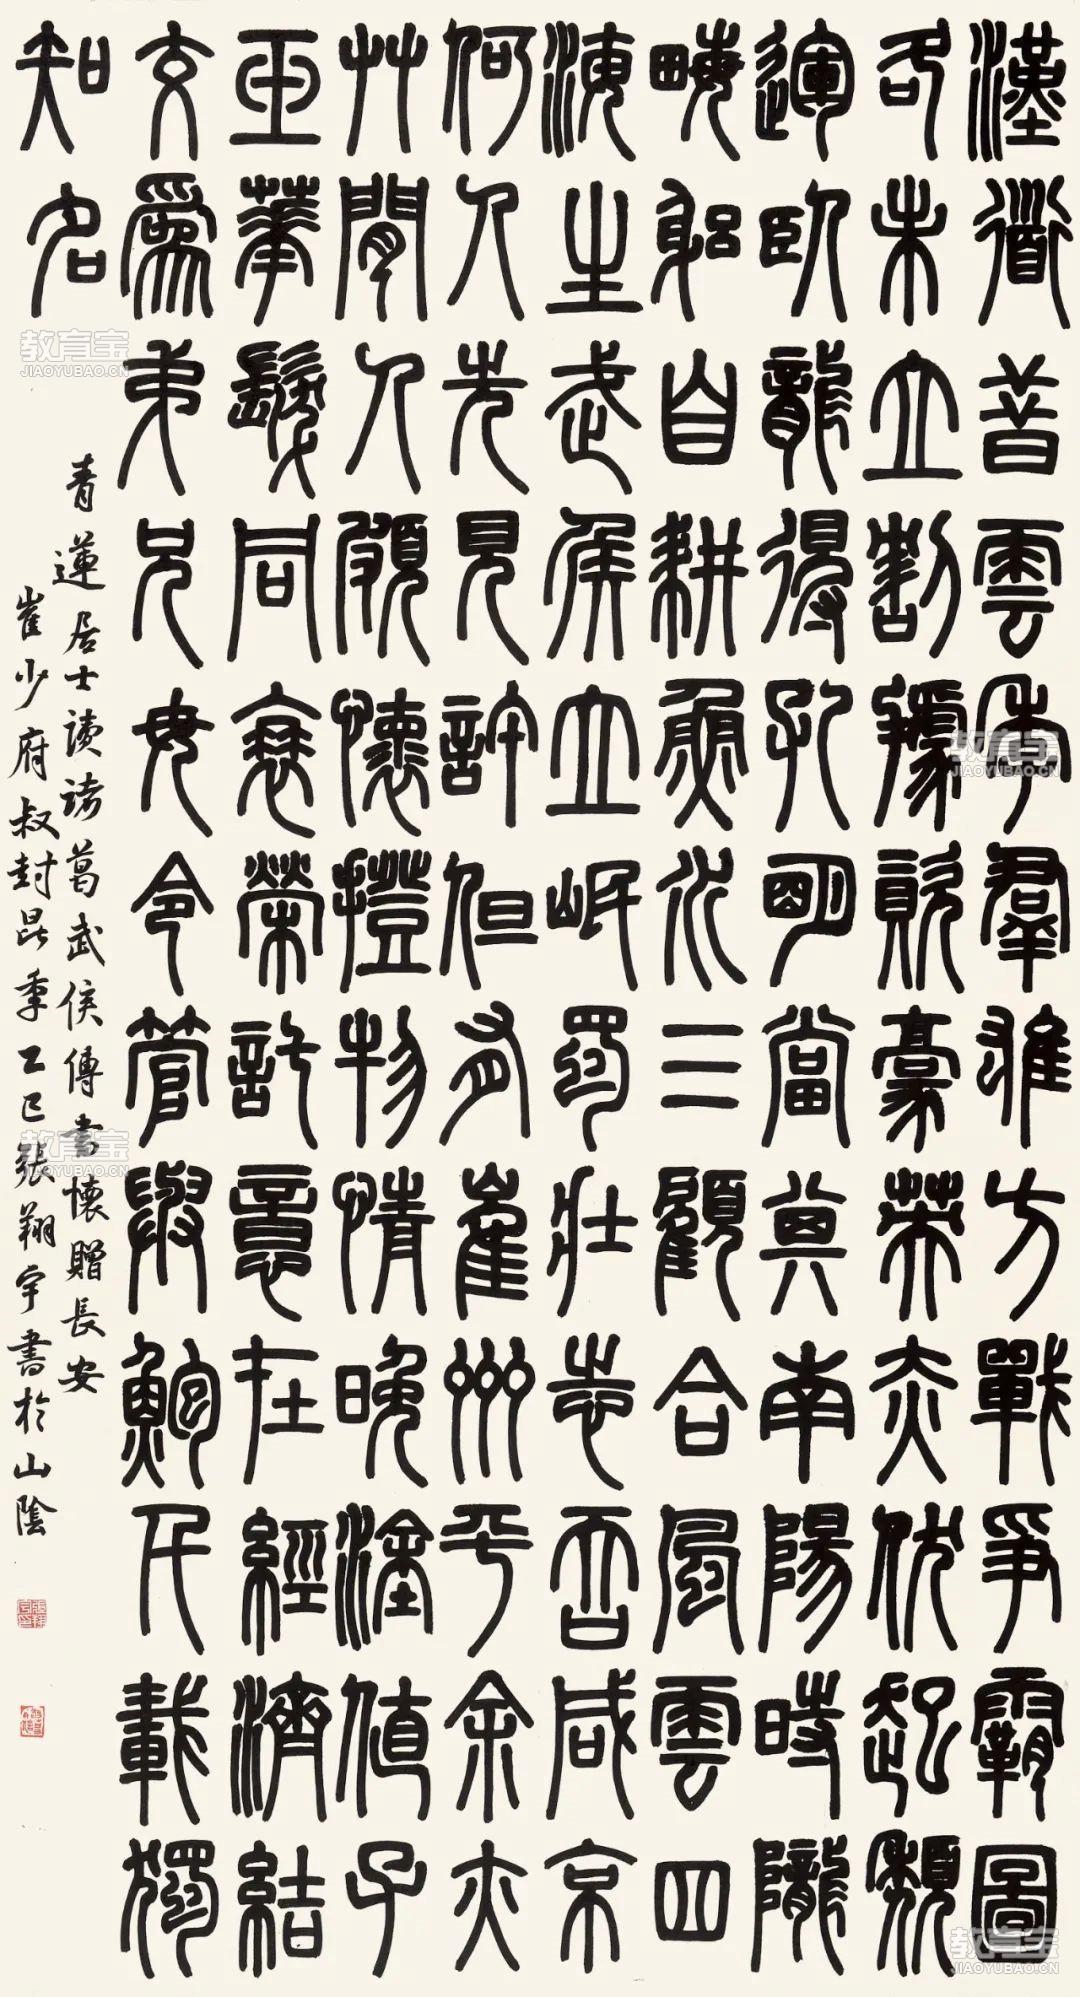 漢道昔雲季羣雄方戰爭霸圖
各未立割據資豪英赤伏起頹
運臥龍得孔明當其南陽時隴
畮躬自耕魚水三顧合風雲四
海生武侯立岷蜀壯志吞咸京
何人先見許但有崔州平余亦
艸閒人頗懷撜物情晚塗值子
玉華髮同衰榮託意在經濟結
交爲弟兄毋令管與鮑千載獨
知名
青蓮居士讀諸葛武侯傳書懷贈長安
崔少府叔封昆季乙巳張翔宇書於山陰
教育宝
JIAOYUBAO.CN
教育宝
JIAOYUBAO.CN
教育宝
JIAOYUBAO.CN
教育宝
JIAOYUBAO.CN